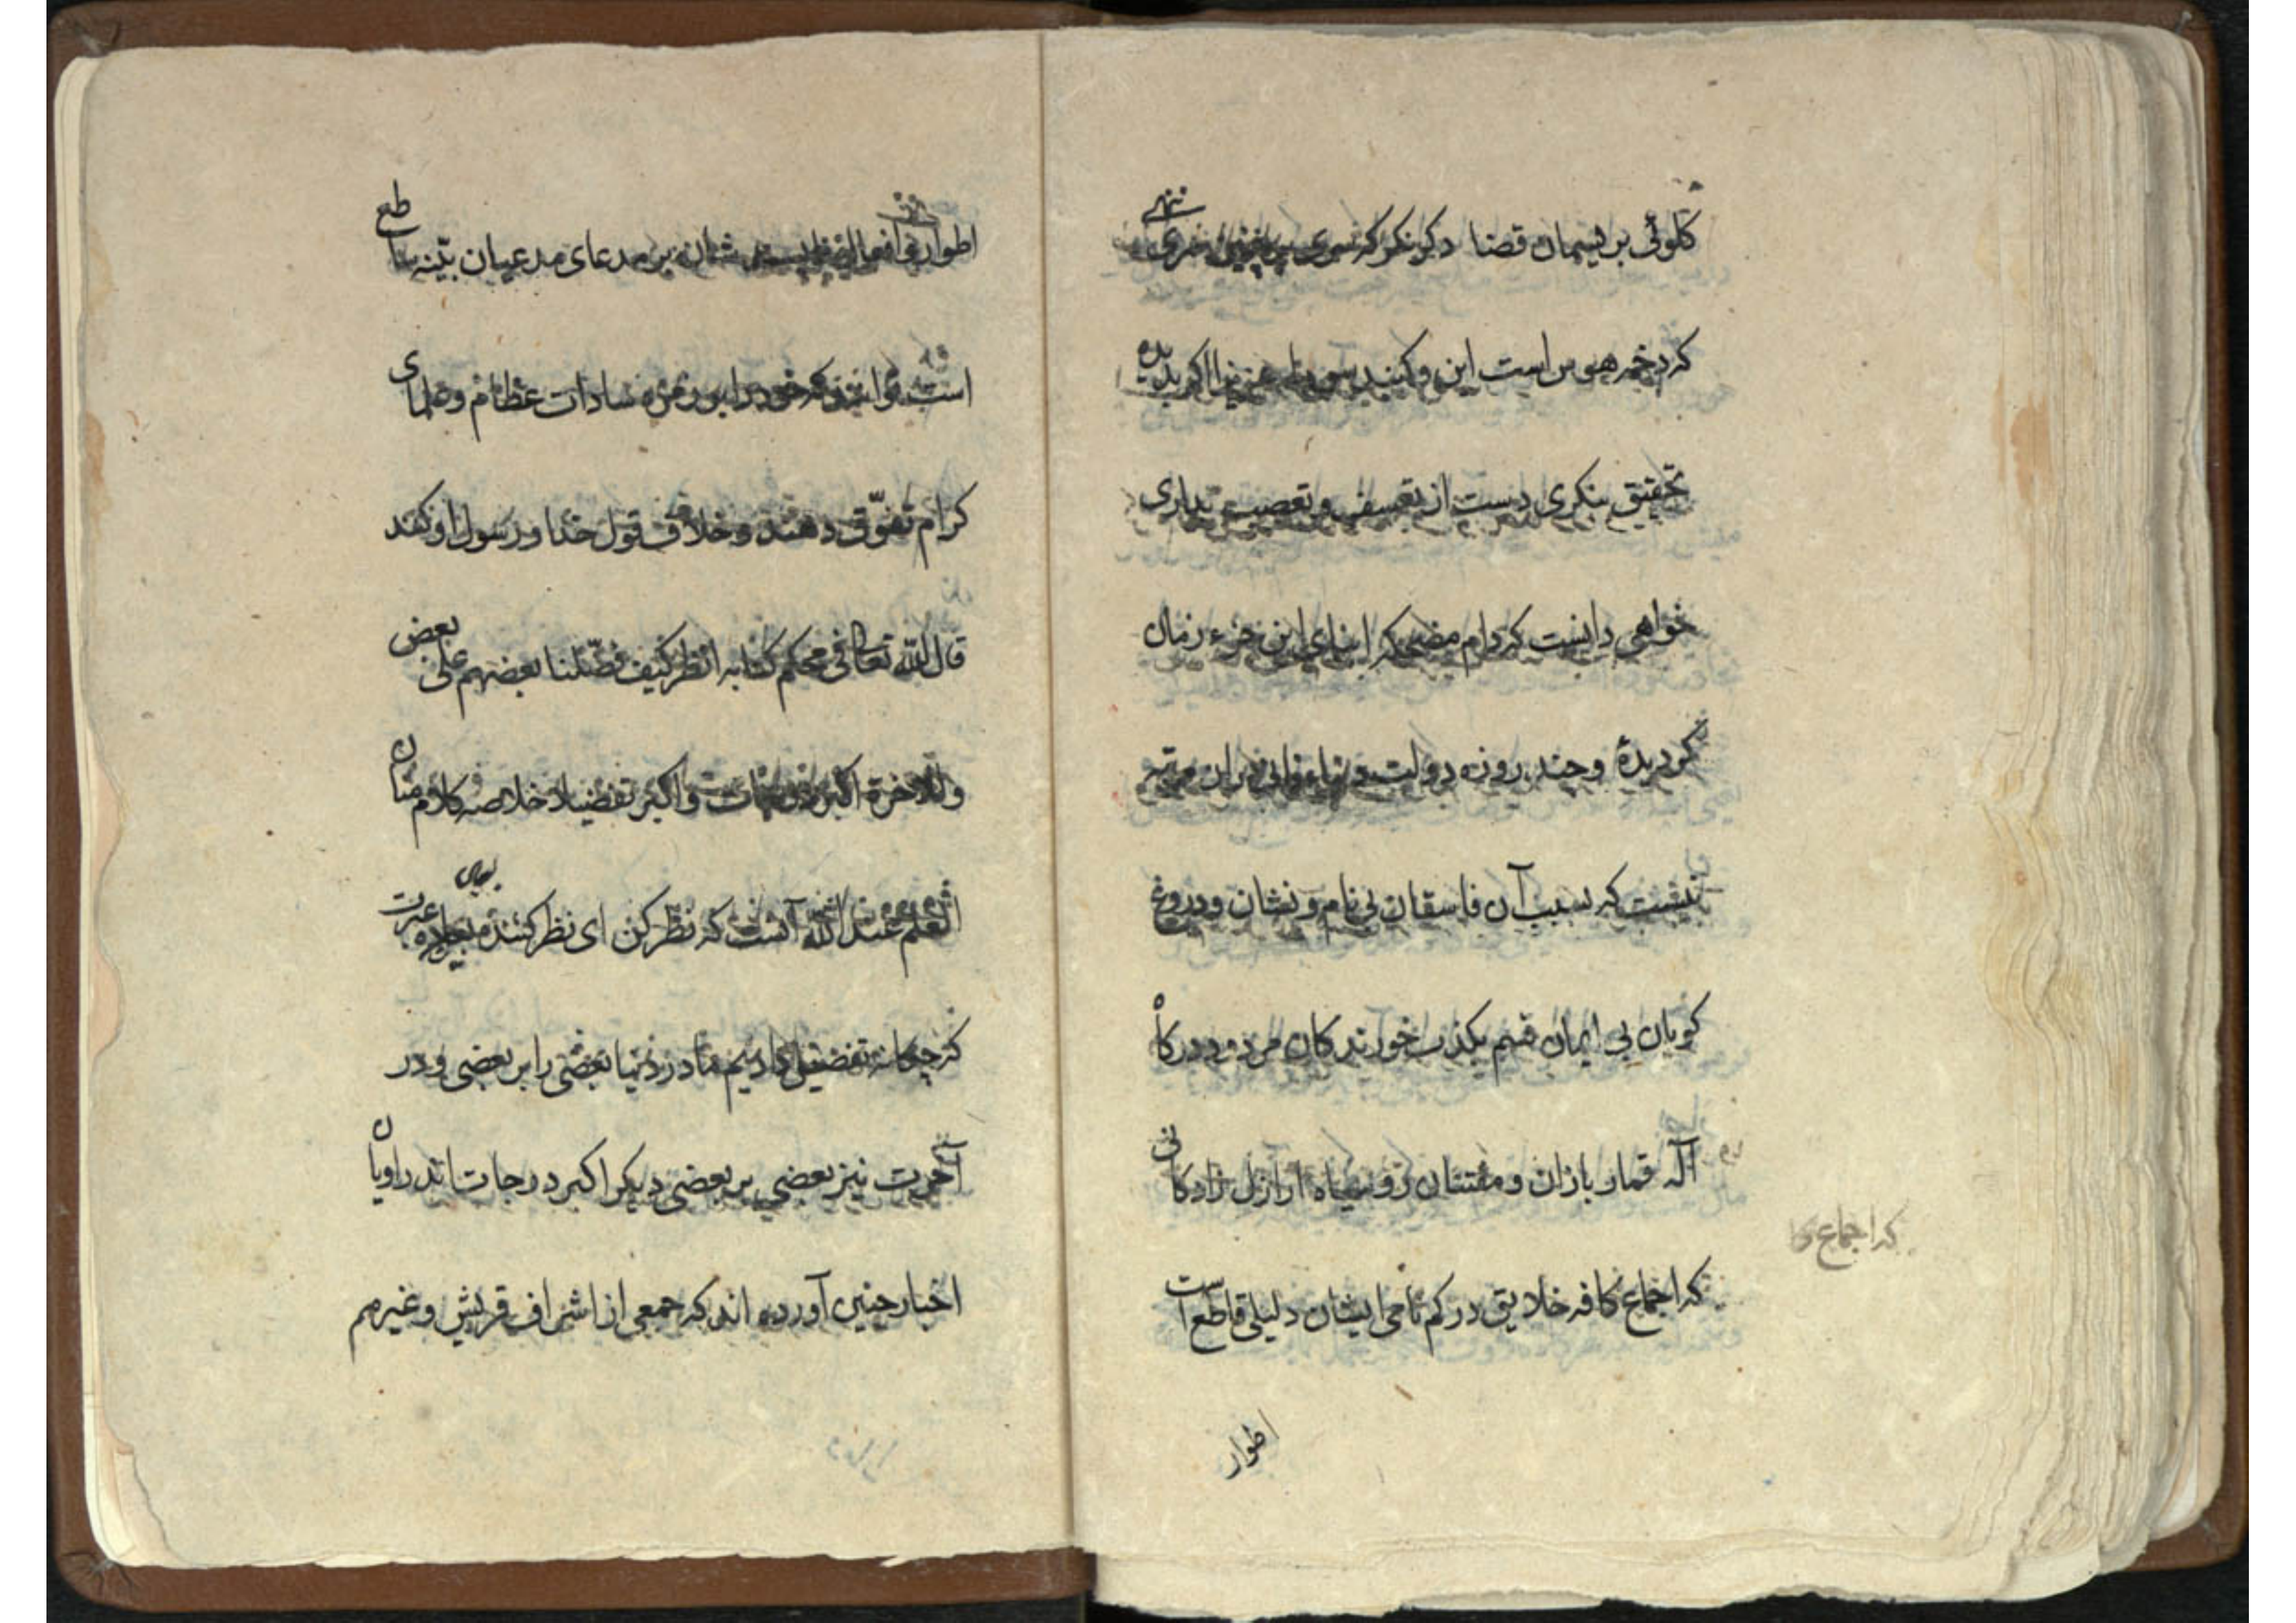 کلوئی بریسمان قضا دکر نکر که سوی
که دخمه هوس است این و کنبد عزیزا اکر بدیده
تحقیق بنکری دست از تعسف و تعصب بداری
خواهی دانست که دام مضحکه ابنای این جزء زمان
کردیده و چند روزه دولت دنیاء فانی بران مرتب
نیست که بسبب آن فاسقان بی نام و نشان و دروغ
کویان بی ایمان قسم بکذب خورندکان مردود درکاه
آله قمار بازان و مفتنان رو سیاه ارازل زادکانی
که اجماع کا
که اجماع کافه خلایق در کم نامی ایشان دلیلی قاطع است
اطوار
اطوار شان بر مدعای مدعیان بینه ساطع
است توانند که خود را بر زمره سادات عظام و علمای
کرام تفوّق دهند و خلاف قول خدا و رسول او کنند
قال الله تعالی فی محکم کتابه انظر کیف فضّلنا بعضهم علی بعض
وللاخرة اکبر درجات واکبر تفضیلا خلاصه کلام منان
العلم عند الله آنست که نظر کن ای نظر کننده عبرت
که چکانه تفضیل دادیم ما در دنیا بعضی را بر بعضی و در
آخرت نیز بعضی بر بعضی دیکر اکبر درجات اند راویان
اخبار چنین آورده اند که جمعی از اشراف قریش و غیرهم